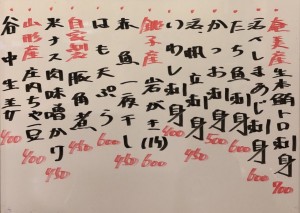 奄美産 生本鮪トロ刺身 900
しまあじ刺身 600
たち魚刺身 600
かつお刺身 500
活帆立刺身 600
いわし刺身 400
銚子産 岩がき 600
赤魚一夜干し 450
はも天ぷら 600
自家製 豚角煮 450
水ナス肉味噌かけ 450
山形産 庄内ちゃ豆 400
谷中生姜 400